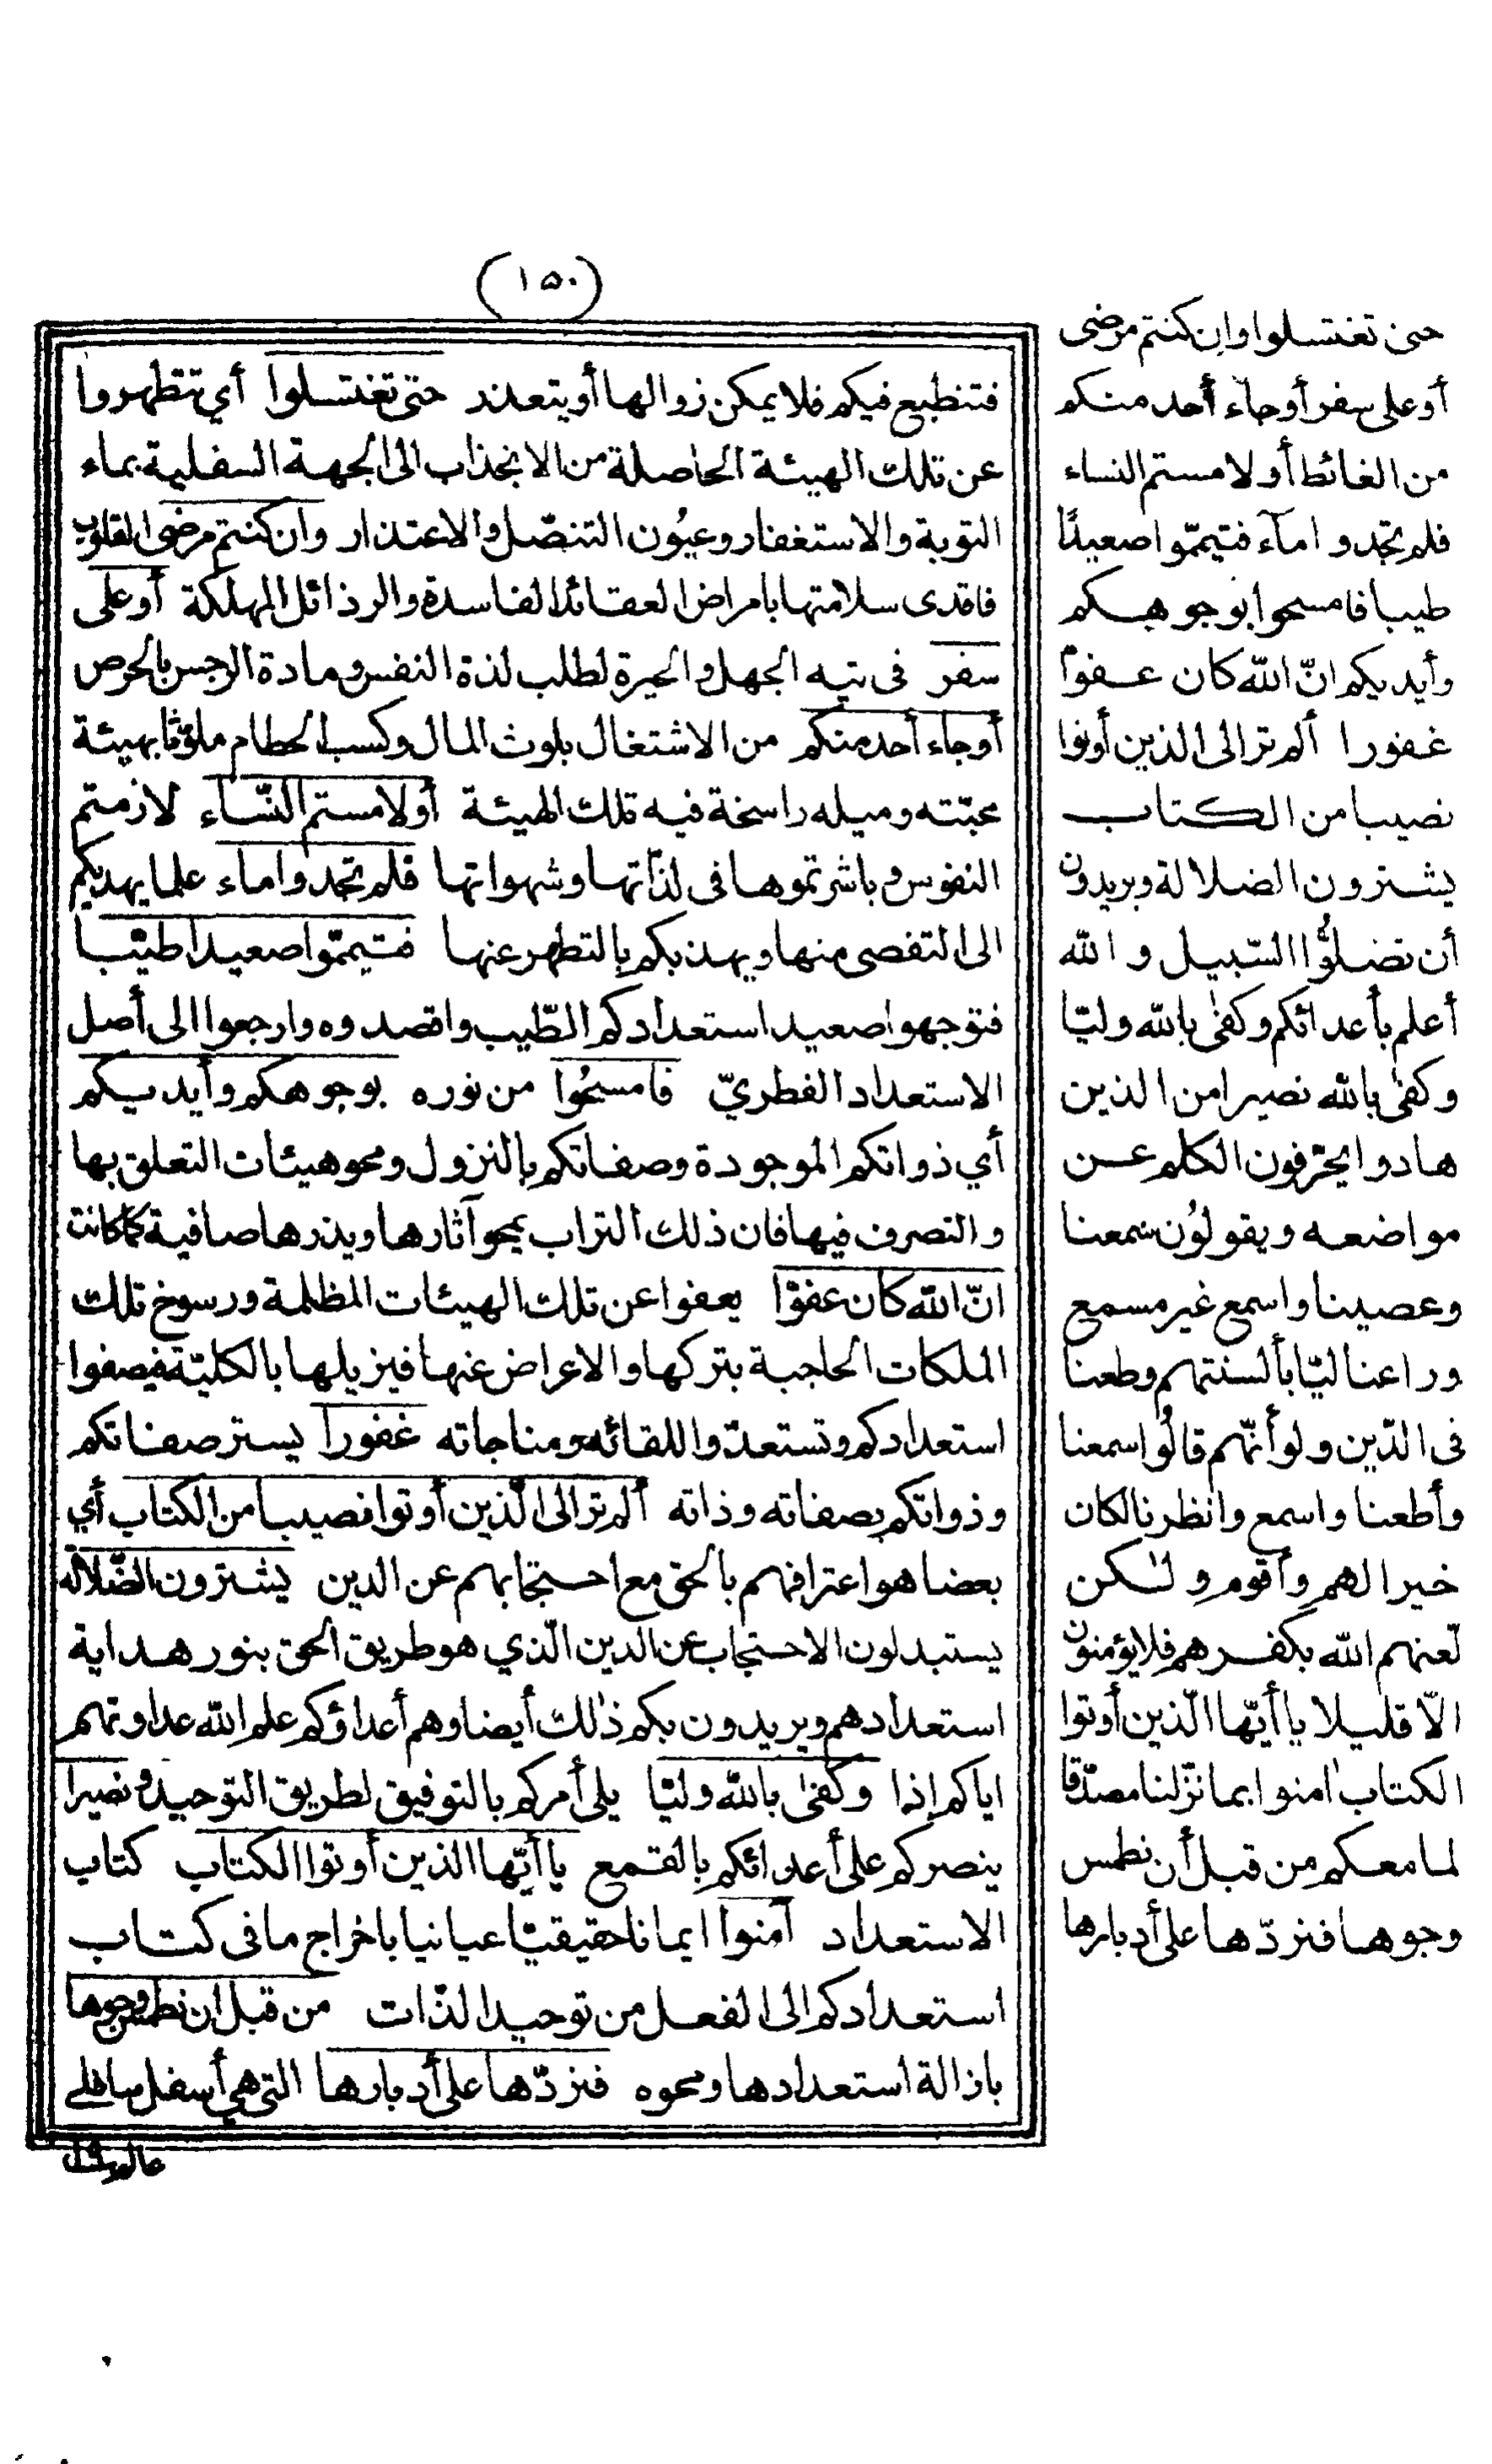 (١٥٠)
حتى تغتسلوا وان كنتم مرضى
أو على سفر أو جاء أحد منكم
من الغائط أو لامستم النساء
فلم تجدوا مآء فتيمّموا صعيدًا
طيبا فامسحوا بوجوهكم
وأيديكم انّ الله كان عفوّا
غفورا ألم تر الى الذين أوتوا
نصيبا من الكتاب
يشترون الضلالة ويريدون
أن تضلّوا السّبيل والله
أعلم بأعدائكم وكفى بالله وليّا
وكفى بالله نصيرا من الذين
هادوا يحرّفون الكلم عن
مواضعه ويقولون سمعنا
وعصينا واسمع غير مسمع
وراعنا ليّا بألسنتهم وطعنا
فى الدّين ولو أنّهم قالوا سمعنا
وأطعنا واسمع وانظرنا لكان
خيرا لهم وأقوم ولكن
لعنهم الله بكفرهم فلا يؤمنون
الّا قليلا يا أيّها الّذين أوتوا
الكتاب امنوا بما نزّلنا مصدّقا
لما معكم من قبل أن نطمس
وجوها فنردّها على أدبارها
فتنطبع فيكم فلا يمكن زوالها أو يتعذر حتى تغتسلوا أي تتطهروا
عن تلك الهيئة الحاصلة من الانجذاب الى الجهة السفلية بماء
التوبة والاستغفار وعيون التنصّل والاعتذار وان كنتم مرضى القلوب
فاقدى سلامتها بامراض العقائد الفاسدة والرذائل المهلكة أو على
سفر فى تيه الجهل والحيرة لطلب لذة النفس ومادة الرجس بالحرص
أو جاء أحد منكم من الاشتغال بلوث المال وكسب الحطام ملوّثا بهيئة
محبّته وميله راسخة فيه تلك الهيئة أو لامستم النّساء لازمتم
النفوس وباشرتموها فى لذّاتها وشهواتها فلم تجدوا ماء علما يهديكم
الى التفصى منها ويهذبكم بالتطهر عنها فتيمّموا صعيدا طيّبا
فتوجهوا صعيد استعدادكم الطّيب واقصدوه وارجعوا الى أصل
الاستعداد الفطريّ فامسحوا من نوره بوجوهكم وأيديكم
أي ذواتكم الموجودة وصفاتكم بالنزول ومحو هيئات التعلق بها
والتصرف فيها فان ذلك التراب يمحو آثارها ويذرها صافية كما كانت
انّ الله كان عفوّا يعفوا عن تلك الهيئات المظلمة ورسوخ تلك
الملكات الحاجبة بتركها والاعراض عنها فيزيلها بالكليّة فيصفوا
استعدادكم وتستعدّوا للقائه ومناجاته غفورا يستر صفاتكم
وذواتكم بصفاته وذاته ألم تر الى الّذين أوتوا نصيبا من الكتاب أي
بعضا هو اعترافهم بالحق مع احتجابهم عن الدين يشترون الضّلالة
يستبدلون الاحتجاب عن الدين الّذي هو طريق الحق بنور هداية
استعدادهم ويريدون بكم ذلك أيضا وهم أعداؤكم علم الله عداوتهم
اياكم إذا وكفى بالله وليّا يلى أمركم بالتوفيق لطريق التوحيد ونصيرا
ينصركم على أعدائكم بالقمع يا أيّها الذين أوتوا الكتاب كتاب
الاستعداد آمنوا ايمانا حقيقيّا عيانيا باخراج ما فى كتاب
استعدادكم الى الفعل من توحيد الذّات من قبل ان نطمس وجوها
بازالة استعدادها ومحوه فنردّها على أدبارها التى هي أسفل سافلي
عالم